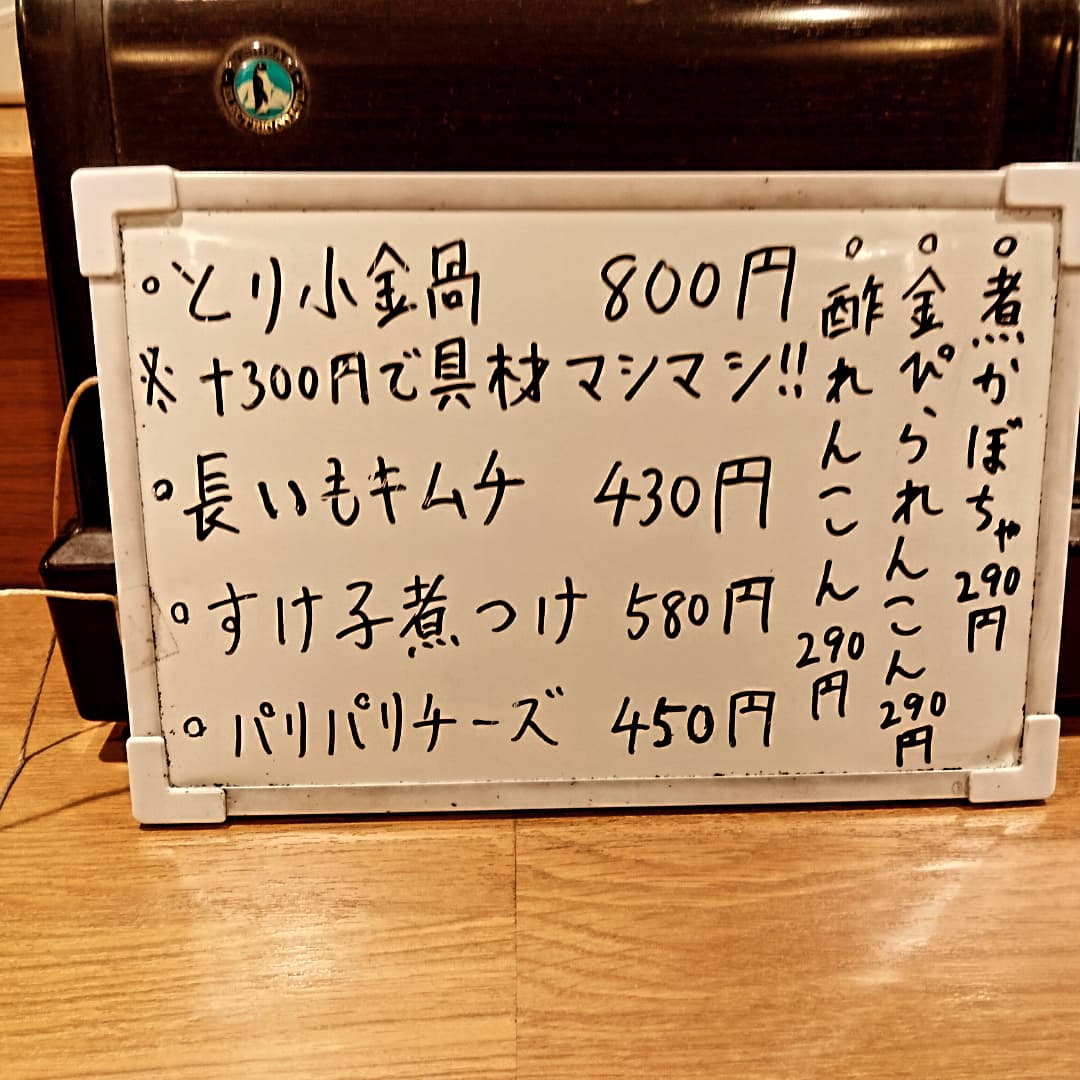 。とり小鍋 800円
※ +300円で具材マシマシ!!
。長いもキムチ 430円
。すけ子煮つけ 580円
。パリパリチーズ 450円
。煮かぼちゃ 290円
。金ぴられんこん 290円
。酢れんこん 290円